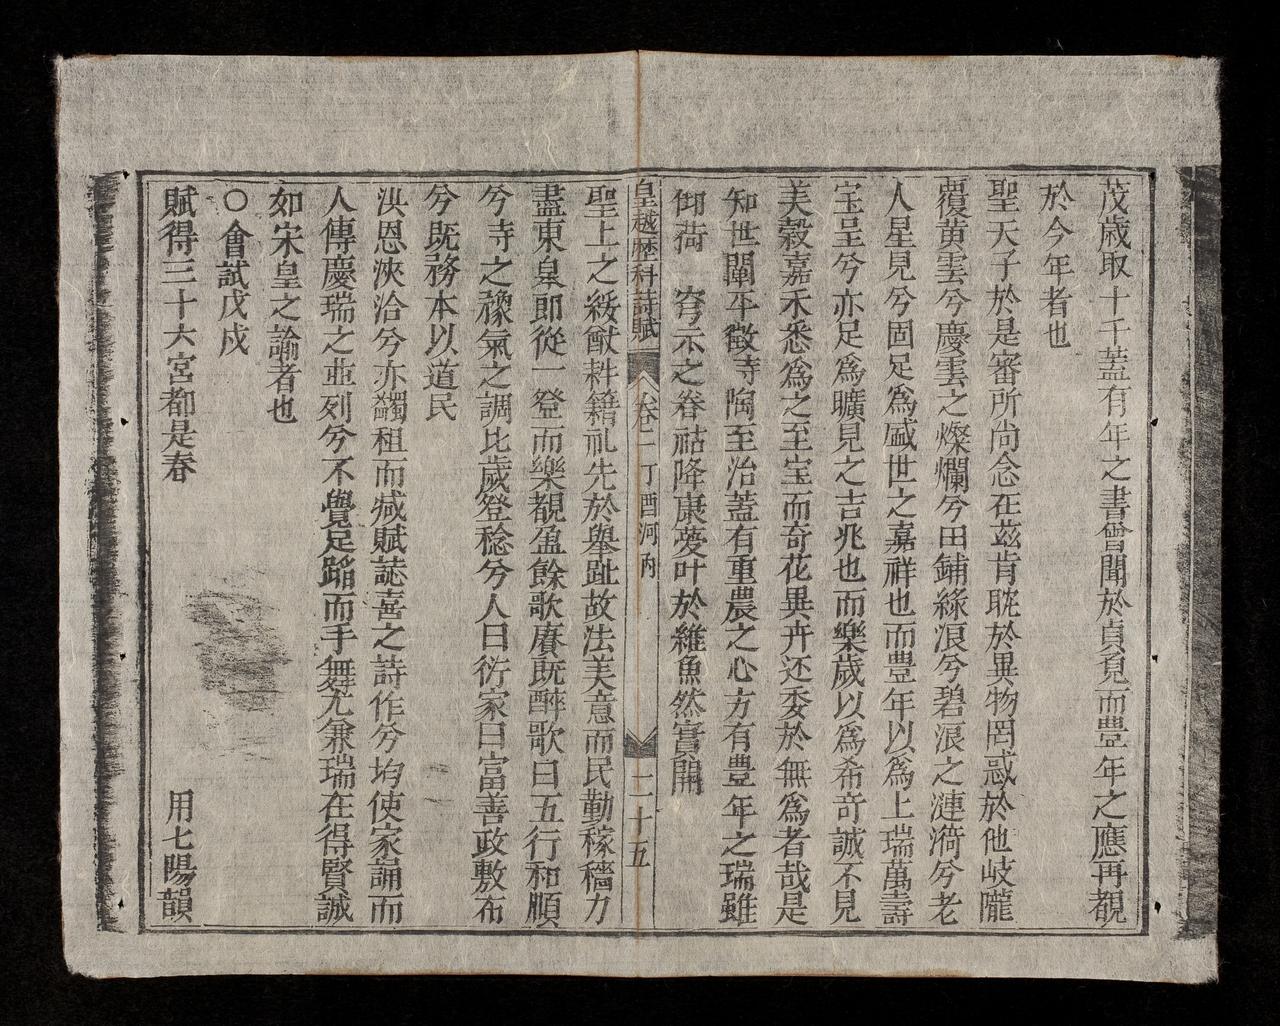 茂歲取十千蓋有年之書曾聞於貞覔而豊年之應再覩
於今年者也
聖天子於是審所尚念在兹肯耽於異物罔惑於他岐隴
覆黄雲兮慶雲之燦爛兮田鋪綠浪兮碧浪之漣漪兮老
人星見兮固足爲盛世之嘉祥也而豊年以爲上瑞萬壽
宝呈兮亦足爲曠見之吉兆也而樂歲以爲希竒誠不見
美榖嘉禾悉爲之至宝而竒花異卉还委於無爲者哉是
知世闡平徵時陶至治蓋有重農之心方有豊年之瑞雖
御荷 穹示之眷祜降康夢叶於維魚然實開
皇越歷科詩賦 卷二 丁酉河内 二十五
聖上之綏猷耕籍礼先於舉趾故法美意而民勤稼穡力
盡東臯即從一登而樂覩盈餘歌賡既醉歌曰五行和順
兮寺之豫氣之調比歲登稔兮人曰衍家曰富善政敷布
兮既務本以道民
洪恩浹洽兮亦蠲租而减賦誌喜之詩作兮均使家誦而
人傳慶瑞之並列兮不覺足蹈而手舞尤兼瑞在得賢誠
如宋皇之諭者也
〇會試戊戍
賦得三十六宮都是春 用七陽韻